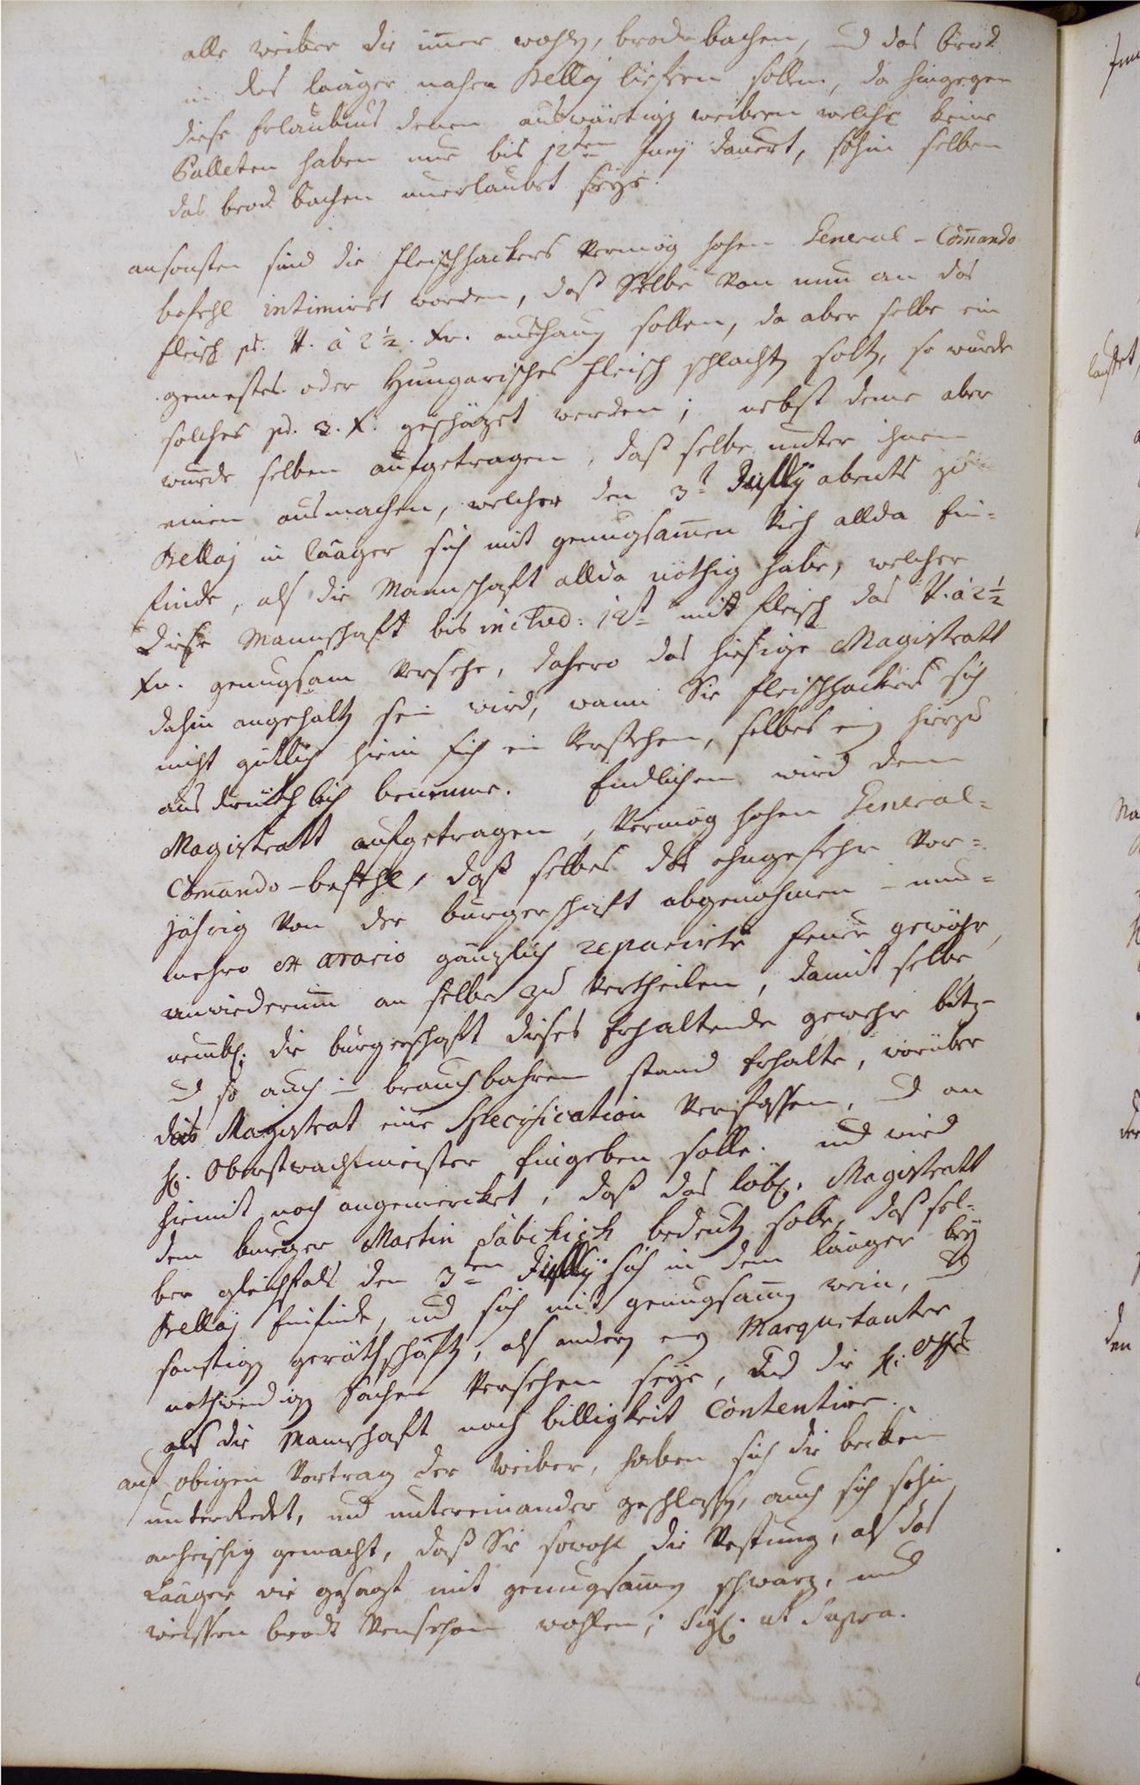 alle weiber die im̄er wohlen, brode bachen, und das brod
in das laager nacher Bellaj lieffern sollen, da hingegen
diese Erlaubnus denen auswärtigen weibern welche keine
Palleten haben nur bis 12ten Junÿ dauert, sohin selben
das brod bachen unerlaubet seÿe.
ansonsten sind die fleischhackers Vermög hohen General-Com̄ando
befehl intimiret worden, daß Selbe von nun an das
fleisch pr. ℔. à 2½. xr. aushauen sollen, da aber selbe ein
gemestes oder Hungarisches fleisch schlachten solten, so wurde
solches pr. 3. x. geschäzet werden; nebst deme aber
wurde selben aufgetragen, daß selbe unter ihnen
einen ausmachen, welcher den 3t Jullÿ abents zu
Bellaj in laager sich mit genugsamen Vieh allda Ein=
finde, als die Mannschaft allda nöthig habe, welcher
diese Mannschaft bis includ: 12t mit fleisch das ℔. à 2½
xr. genugsam Versehe, dahero das hiesige Magistratt
dahin angehalten sein wird, wann Sie fleischhackers sich
nicht gütlich hierin sich ein Verstehen, selbes einen hierzu
ausdrücklich benenne. Endlichen wird dem
Magistratt aufgetragen, Vermög hohen General=
Com̄ando-befehl, daß selbes die ohngefehr Vor=
jährig von der bürgerschaft abgenohmen- nun=
mehro ex ærario gänzlich reparirte feuer gewöhr,
anwiederum an selbe zu Vertheilen, damit selbe
nembl. die bürgerschaft dieses Erhaltende gewehr butz-
und so auch in brauchbahren stand Erhalte, worüber
das Magistrat eine Specification Verfassen, und an
H. Obristwachtmeister Eingeben solle. und wird
hiemit noch angemercket, daß das löbl. Magistratt
dem burger Martin Sabichich bedeuten solle, daß sel=
ber gleichfals den 3ten Jullÿ sich in dem laager beÿ
Bellaj Einfinde, und sich mit genugsamen wein, und
sonstigen geräthschaften, als anderen einem Marquetanter
nothwendigen Sachen Versehen seÿe, und die H. Offrs
als die Mannschaft nach billigkeit Contentire.
auf obigen Vortrag der Weiber, haben sich die becken
unterredet, und untereinander geschlossen, auch sich sohin
anheischig gemacht, daß Sie sowohl die Vestung, als das
Laager wie gesagt mit genugsamen schwarz, und
weissen brodt Versehen wohlen; Sigl. ut Supra.